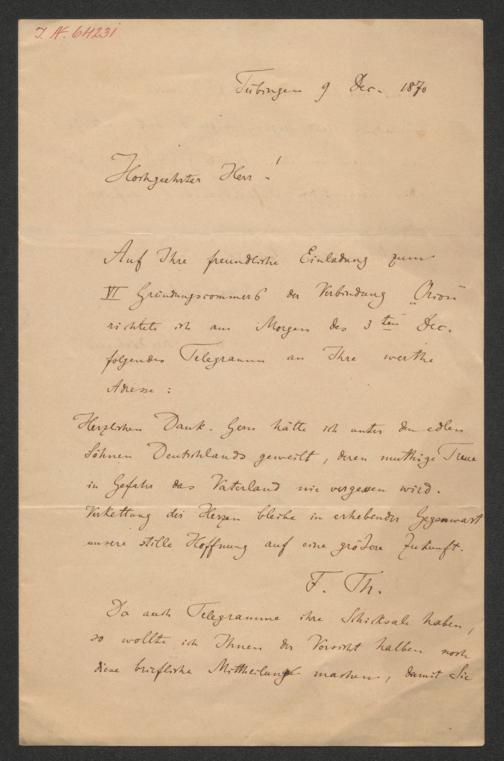 J.N. 64231
Tübingen 9 Dec. 1870
Hochgeehrter Herr!
Auf Ihre freundliche Einladung zum
VI Gründungscommers der Verbindung „Orion"
richtete ich am Morgen des 3ten Dec.
folgendes Telegramm an Ihre werthe
Adresse:
Herzlichen Dank. Gern hätte ich unter den edlen
Söhnen Deutschlands geweilt, deren muthige Treue
in Gefahr das Vaterland nie vergessen wird.
Verkettung der Herzen bleibe in erhebender Gegenwart
unsere stille Hoffnung auf eine größere Zukunft.
F. Th.
Da auch Telegramme ihre Schicksale haben,
so wollte ich Ihnen der Vorsicht halben noch
diese briefliche Mittheilung machen, damit Sie